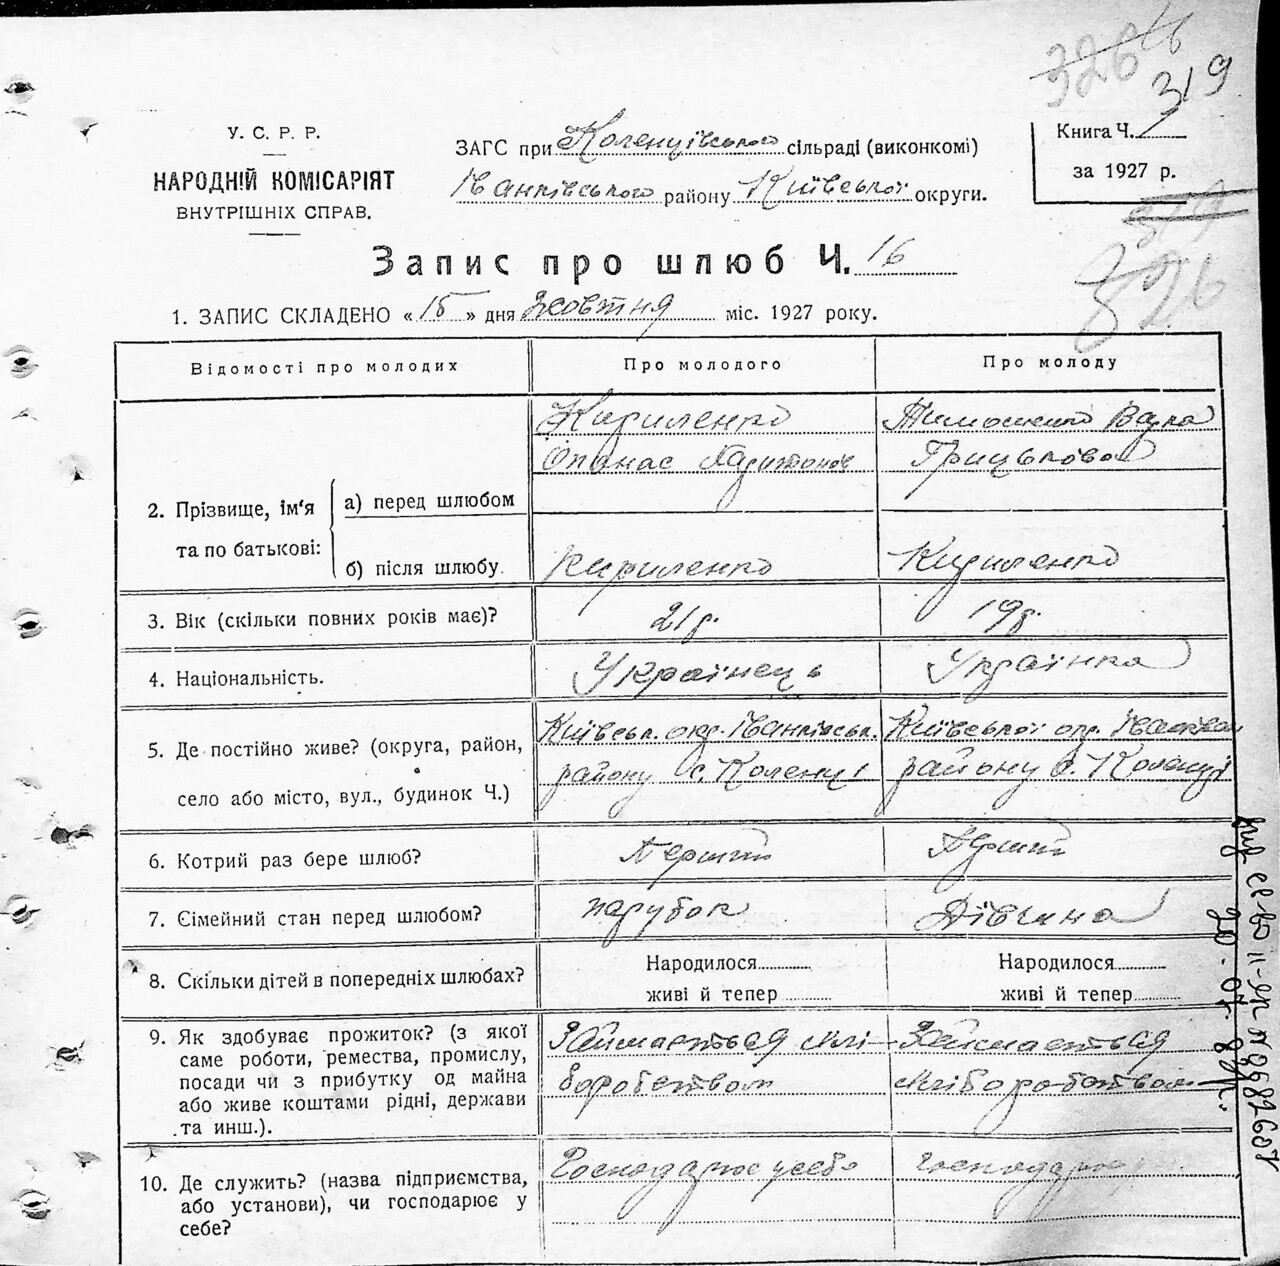 326
319
У. С. Р. Р.
НАРОДНІЙ КОМІСАРІЯТ
ВНУТРІШНІХ СПРАВ.
ЗАГС при Коленцівського сільраді (виконкомі)
Іванківського району Київської округи.
Книга Ч.
за 1927 р.
319
326
Запис про шлюб Ч. 16
1. ЗАПИС СКЛАДЕНО « 15 » дня Жовтня міс. 1927 року.
Відомості про молодих
Про молодого
Про молоду
2. Прізвище, ім'я та по батькові:
а) перед шлюбом
Кириленко
Опанас Харитонов
Тимошенко Варка
Грицькова
б) після шлюбу
Кириленко
Кириленко
3. Вік (скільки повних років має)?
21 р.
19 р.
4. Національність.
Українець
Українка
5. Де постійно живе? (округа, район,
село або місто, вул., будинок Ч.)
Київськ. окр. Іванківськ.
району с. Коленці
Київської окр. Іванків
району с. Коленці
6. Котрий раз бере шлюб?
Перший
Перший
7. Сімейний стан перед шлюбом?
парубок
Дівчина
8. Скільки дітей в попередніх шлюбах?
Народилося
живі й тепер
Народилося
живі й тепер
9. Як здобуває прожиток? (з якої
саме роботи, ремества, промислу,
посади чи з прибутку од майна
або живе коштами рідні, держави
та инш.).
Займається хлі-
боробством
Займається
хліборобством
10. Де служить? (назва підприємства,
або установи), чи господарює у
себе?
Господарює у себе
господарює